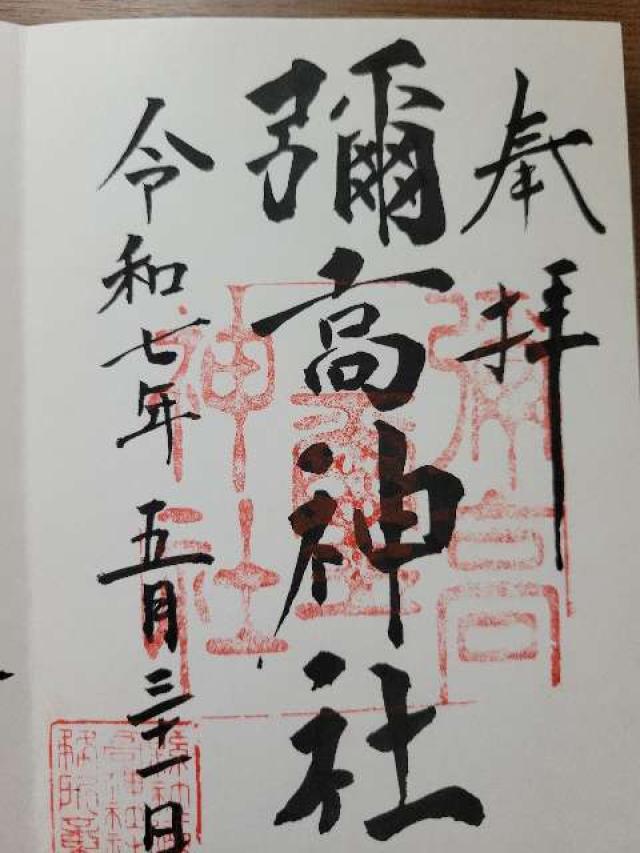 奉拝
彌高神社
令和七年五月三十一日
彌高
神社